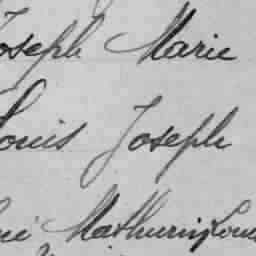 Joseph Marie
Louis Joseph
Mathurin Louis